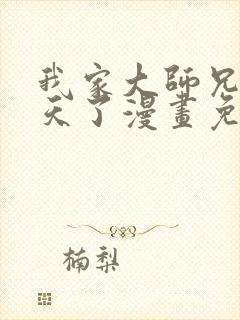 我家大師兄
天了漫畫免
楠梨